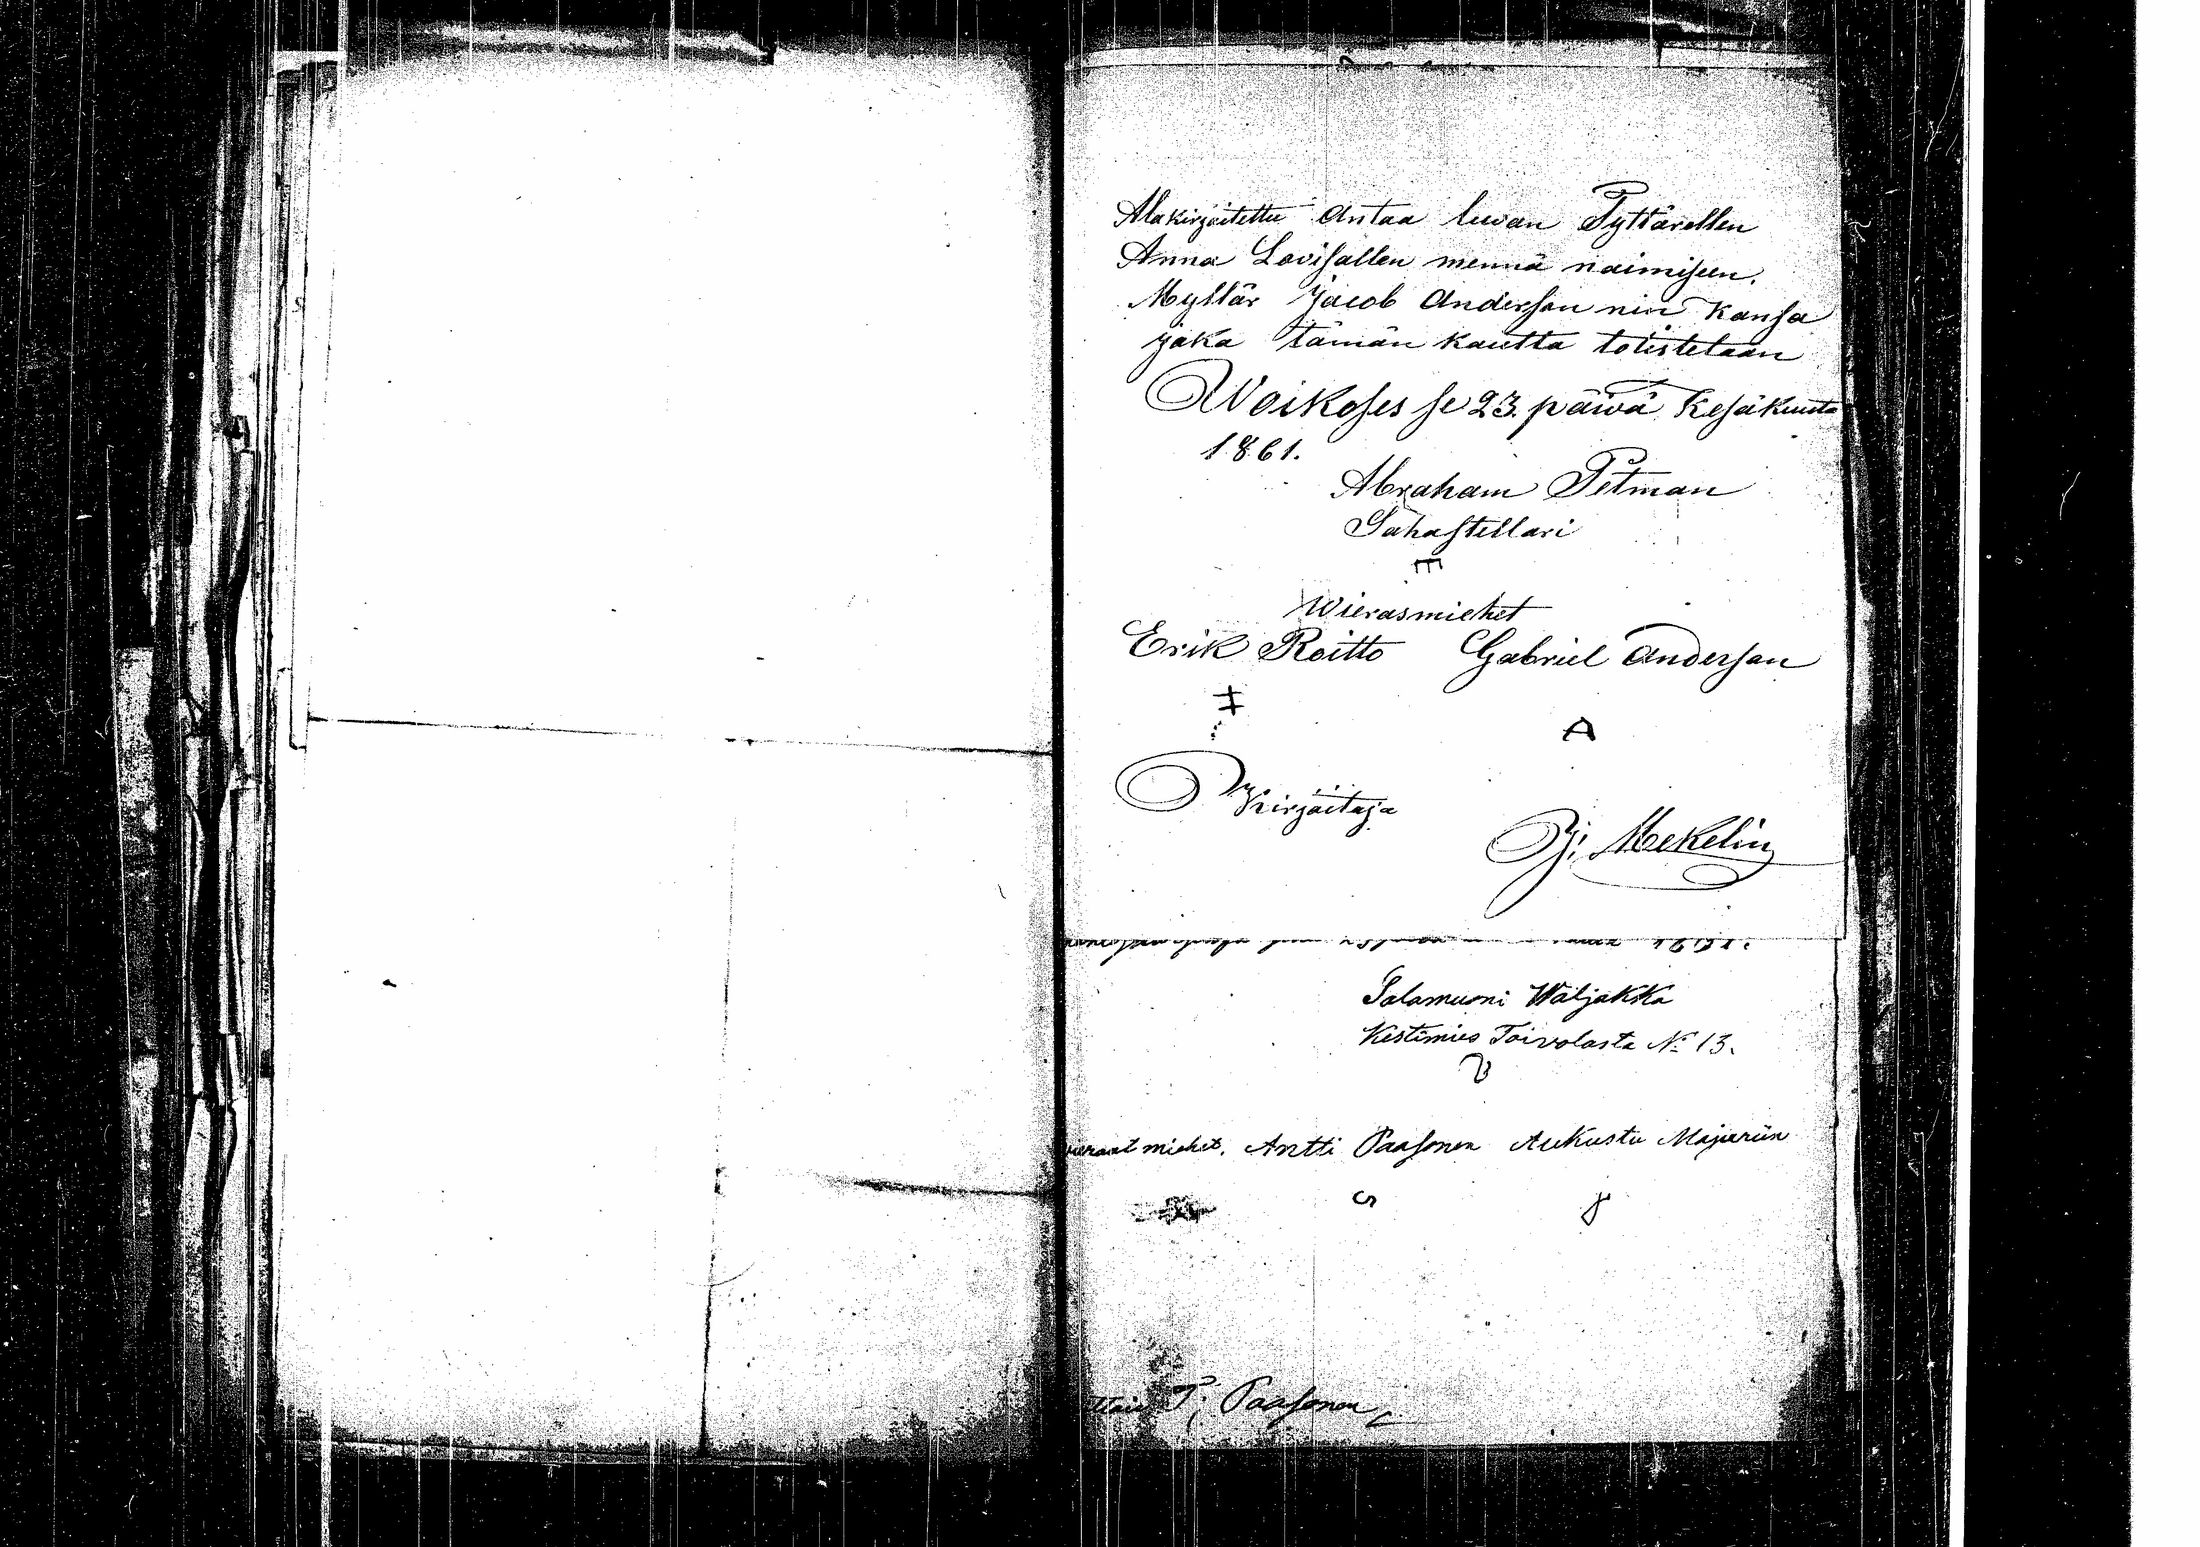 Alakirjoitettu antaa luvan Tyttärellen
Anna Lovisallen mennä naimiseen.
Myllär Jacob Anderson nin kansa
joka tämän kautta totistetaan
Woikoses se 23. päivä Kesäkuuta
1861.
Abraham Petman
Sahastellari
Wierasmiehet
Erik Roitto Gabriel Anderson
A
Kirjoitaja
J: Mekelin
Salamuoni Waljakka
Kestimies Toivolasta No 13.
vieraat miehet. Antti Paasonen Aukustu Majurin
T: Paasonen